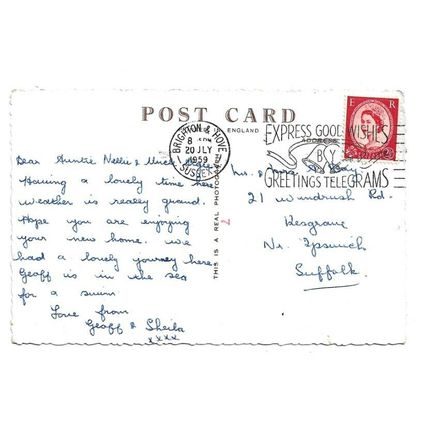 POST CARD
ENGLAND
BRIGTON & HOVE
8 - PM
20 JLY
1959
SUSSEX
EXPRESS GOOD WISHES
BY
GREETINGS TELEGRAMS
E R
THIS IS A REAL PHOTOGRAPH
7
Dear Auntie Nellie &
Having a lovely time here
weather is really grand.
Hope you are enjoying
your new home. We
had a lovely journey here.
Geoff is in the sea
for a swim
Love from
Geoff & Sheila
xxxx
Mrs. &
21 Windrush Rd.
Kesgrave
Nr. Ipswich
Suffolk.